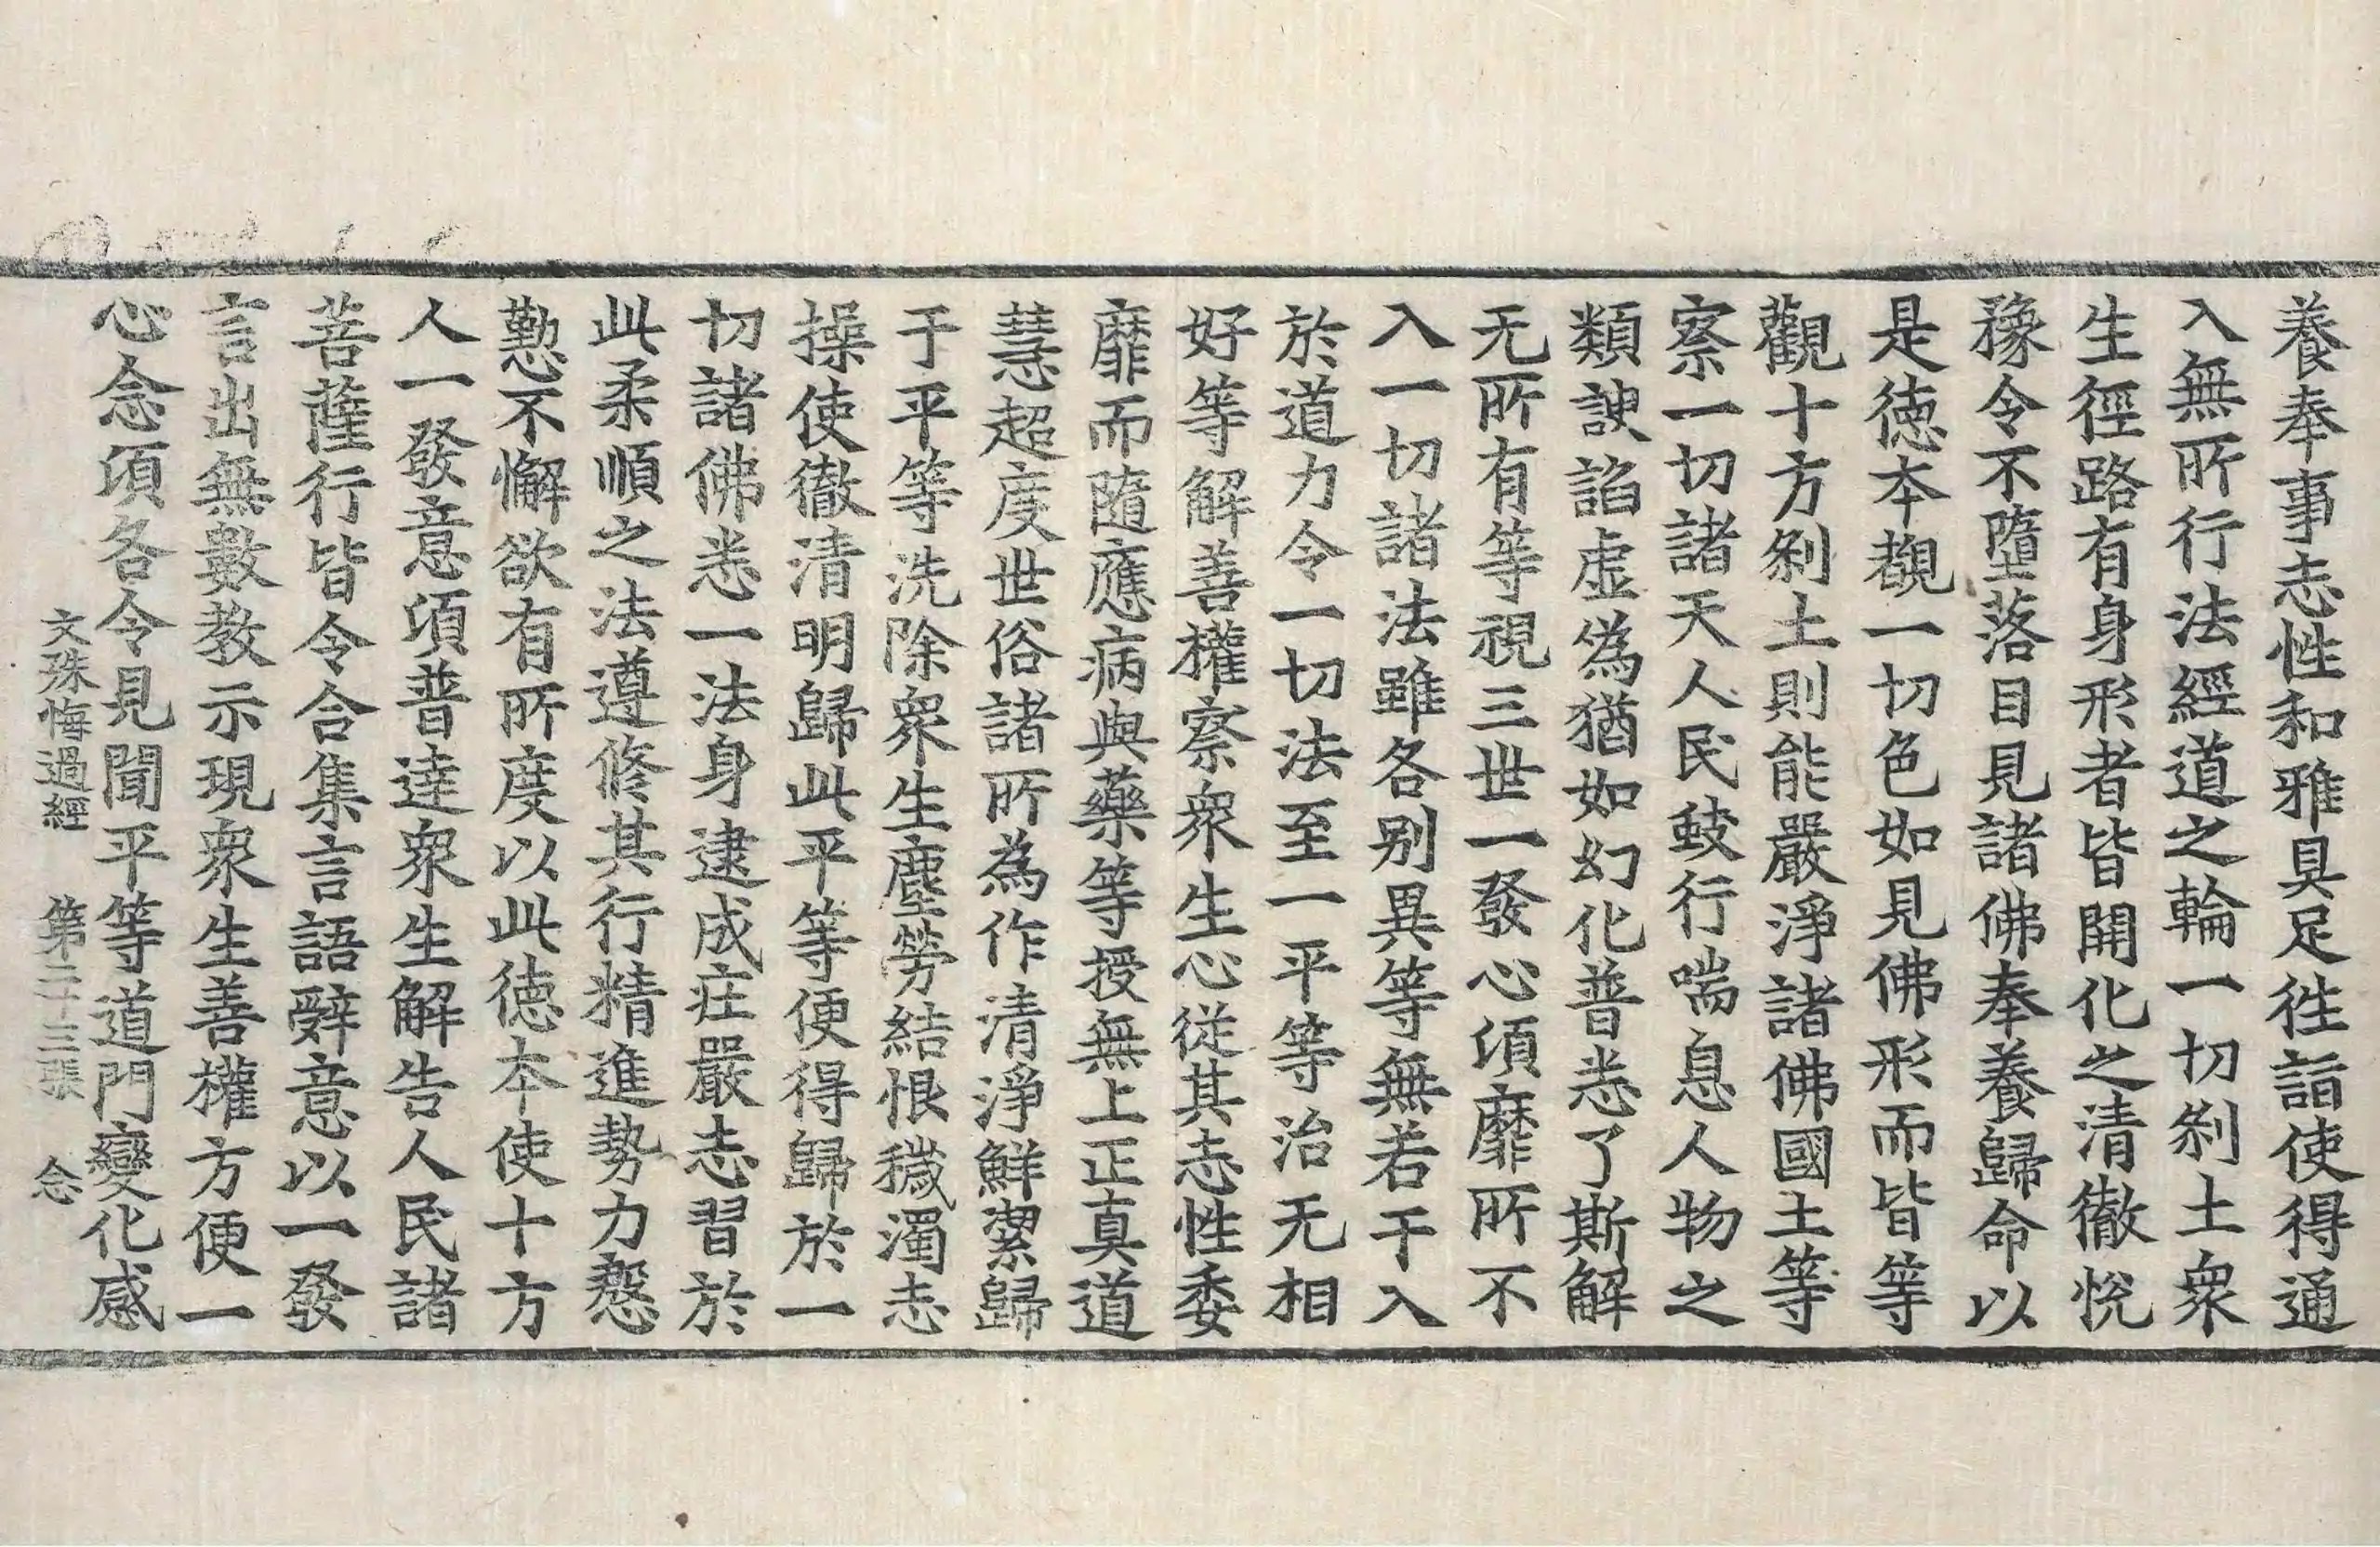 養奉事志性和雅具足徃詣使得通
入無所行法經道之輪一切刹土衆
生徑路有身形者皆開化之清徹恱
豫令不墮落目見諸佛奉養歸命以
是德本覩一切色如見佛形而皆等
觀十方刹土則能嚴淨諸佛國土等
察一切諸天人民蚑行喘息人物之
類諛諂虛僞猶如幻化普悉了斯解
无所有等視三世一發心頃靡所不
入一切諸法雖各別異等無若干入
於道力令一切法至一平等治无相
好等解善權察衆生心從其志性委
靡而隨應病與藥等授無上正真道
慧超度世俗諸所為作清淨鮮潔歸
于平等洗除衆生塵勞結恨穢濁志
操使徹清明歸此平等便得歸於一
切諸佛悉一法身逮成莊嚴志習於
此柔順之法遵修其行精進勢力慇
懃不懈欲有所度以此德本使十方
人一發意頃普達衆生解告人民諸
菩薩行皆令合集言語辭意以一發
言出無數教示現衆生善權方便一
心念頃各令見聞平等道門變化感
文殊悔過經　第二十三張　念